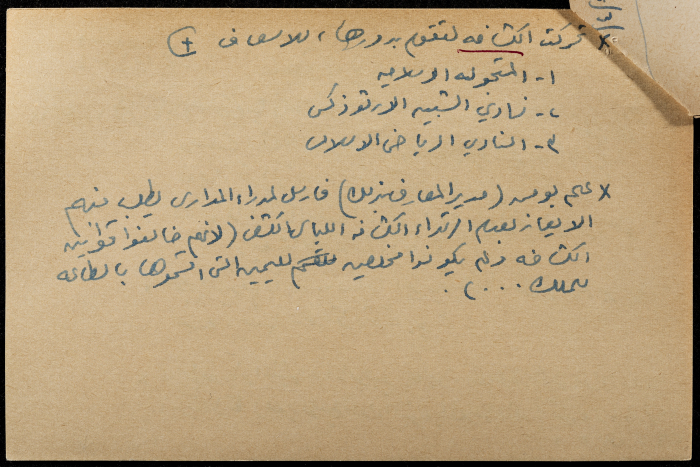 x تحركت الكشافه لتقوم بدورها، للاسعاف +
١- المتجوله الاسلاميه
٢- نادي الشبيبه الارثوذكسي
٣- النادي الرياضي الاسلامي
x علم بومن (مدير المعارف بذلك) فارسل لمدراء المدارس يطلب منهم
الايعاز بعدم ارتداء الكشافه اللباس الكشفي (لانهم خالفوا قوانين
الكشافه ولم يكونوا مخلصين لليمين التي اقسموها بالطاعه
للملك ....).